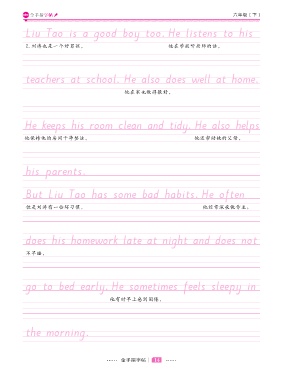 六年级（下）
Liu Tao is a good boy too. He listens to his
2. 刘涛也是一个好男孩。 他在学校听老师的话。
teachers at school. He also does well at home.
他在家也做得很好。
He keeps his room clean and tidy. He also helps
他保持他的房间干净整洁。 他还帮助他的父母。
his parents.
But Liu Tao has some bad habits. He often
但是刘涛有一些坏习惯。 他经常深夜做作业，
does his homework late at night and does not
不早睡。
go to bed early. He sometimes feels sleepy in
他有时早上感到困倦。
the morning.